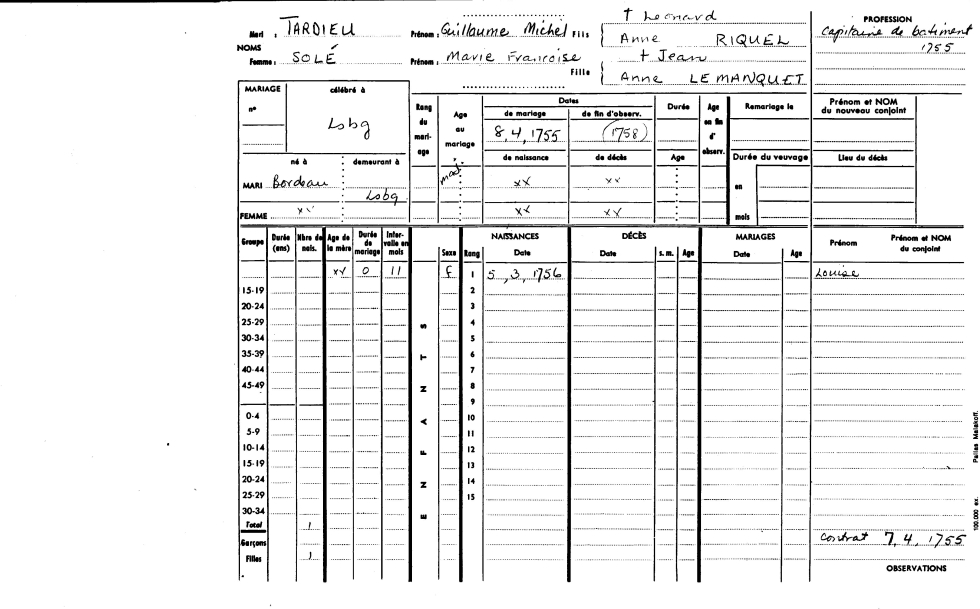 † Leonard
PROFESSION
Mari : TARDIEU Prénom : Guillaume Michel Fils { Anne RIQUEL
Capitaine de batiment
1755
NOMS
† Jean
Femme : SOLÉ Prénom : Marie Francoise Fille { Anne LE MANQUET
MARIAGE célébré à
n°
Lsbg
Rang du mari-age
Age au mariage
Dates
de mariage de fin d'observ.
8, 4, 1755 (1758)
Durée
Age en fin d' observ.
Remariage le
Prénom et NOM du nouveau conjoint
né à demeurant à
de naissance de décès Age Durée du veuvage Lieu du décès
MARI Bordeau Lsbg maj. xx xx en
FEMME xx xx xx mois
Groupe Durée (ans) Nbre de nais. Age de la mère Durée de mariage Inter-valle en mois
Sexe Rang
NAISSANCES Date
DÉCÈS Date s. m. Age
MARIAGES Date Age
Prénom
Prénom et NOM du conjoint
xx 0 11 f 1 5, 3, 1756 Louise
15-19 2
20-24 3
25-29 S 4
30-34 5
35-39 T 6
40-44 7
45-49 N 8
9
0-4 A 10
5-9 11
10-14 F 12
15-19 13
20-24 N 14
25-29 15
30-34 E
Total 1
Garçons
contrat 7, 4, 1755
Filles 1
OBSERVATIONS
100.000 ex. Pallas Malakoff.